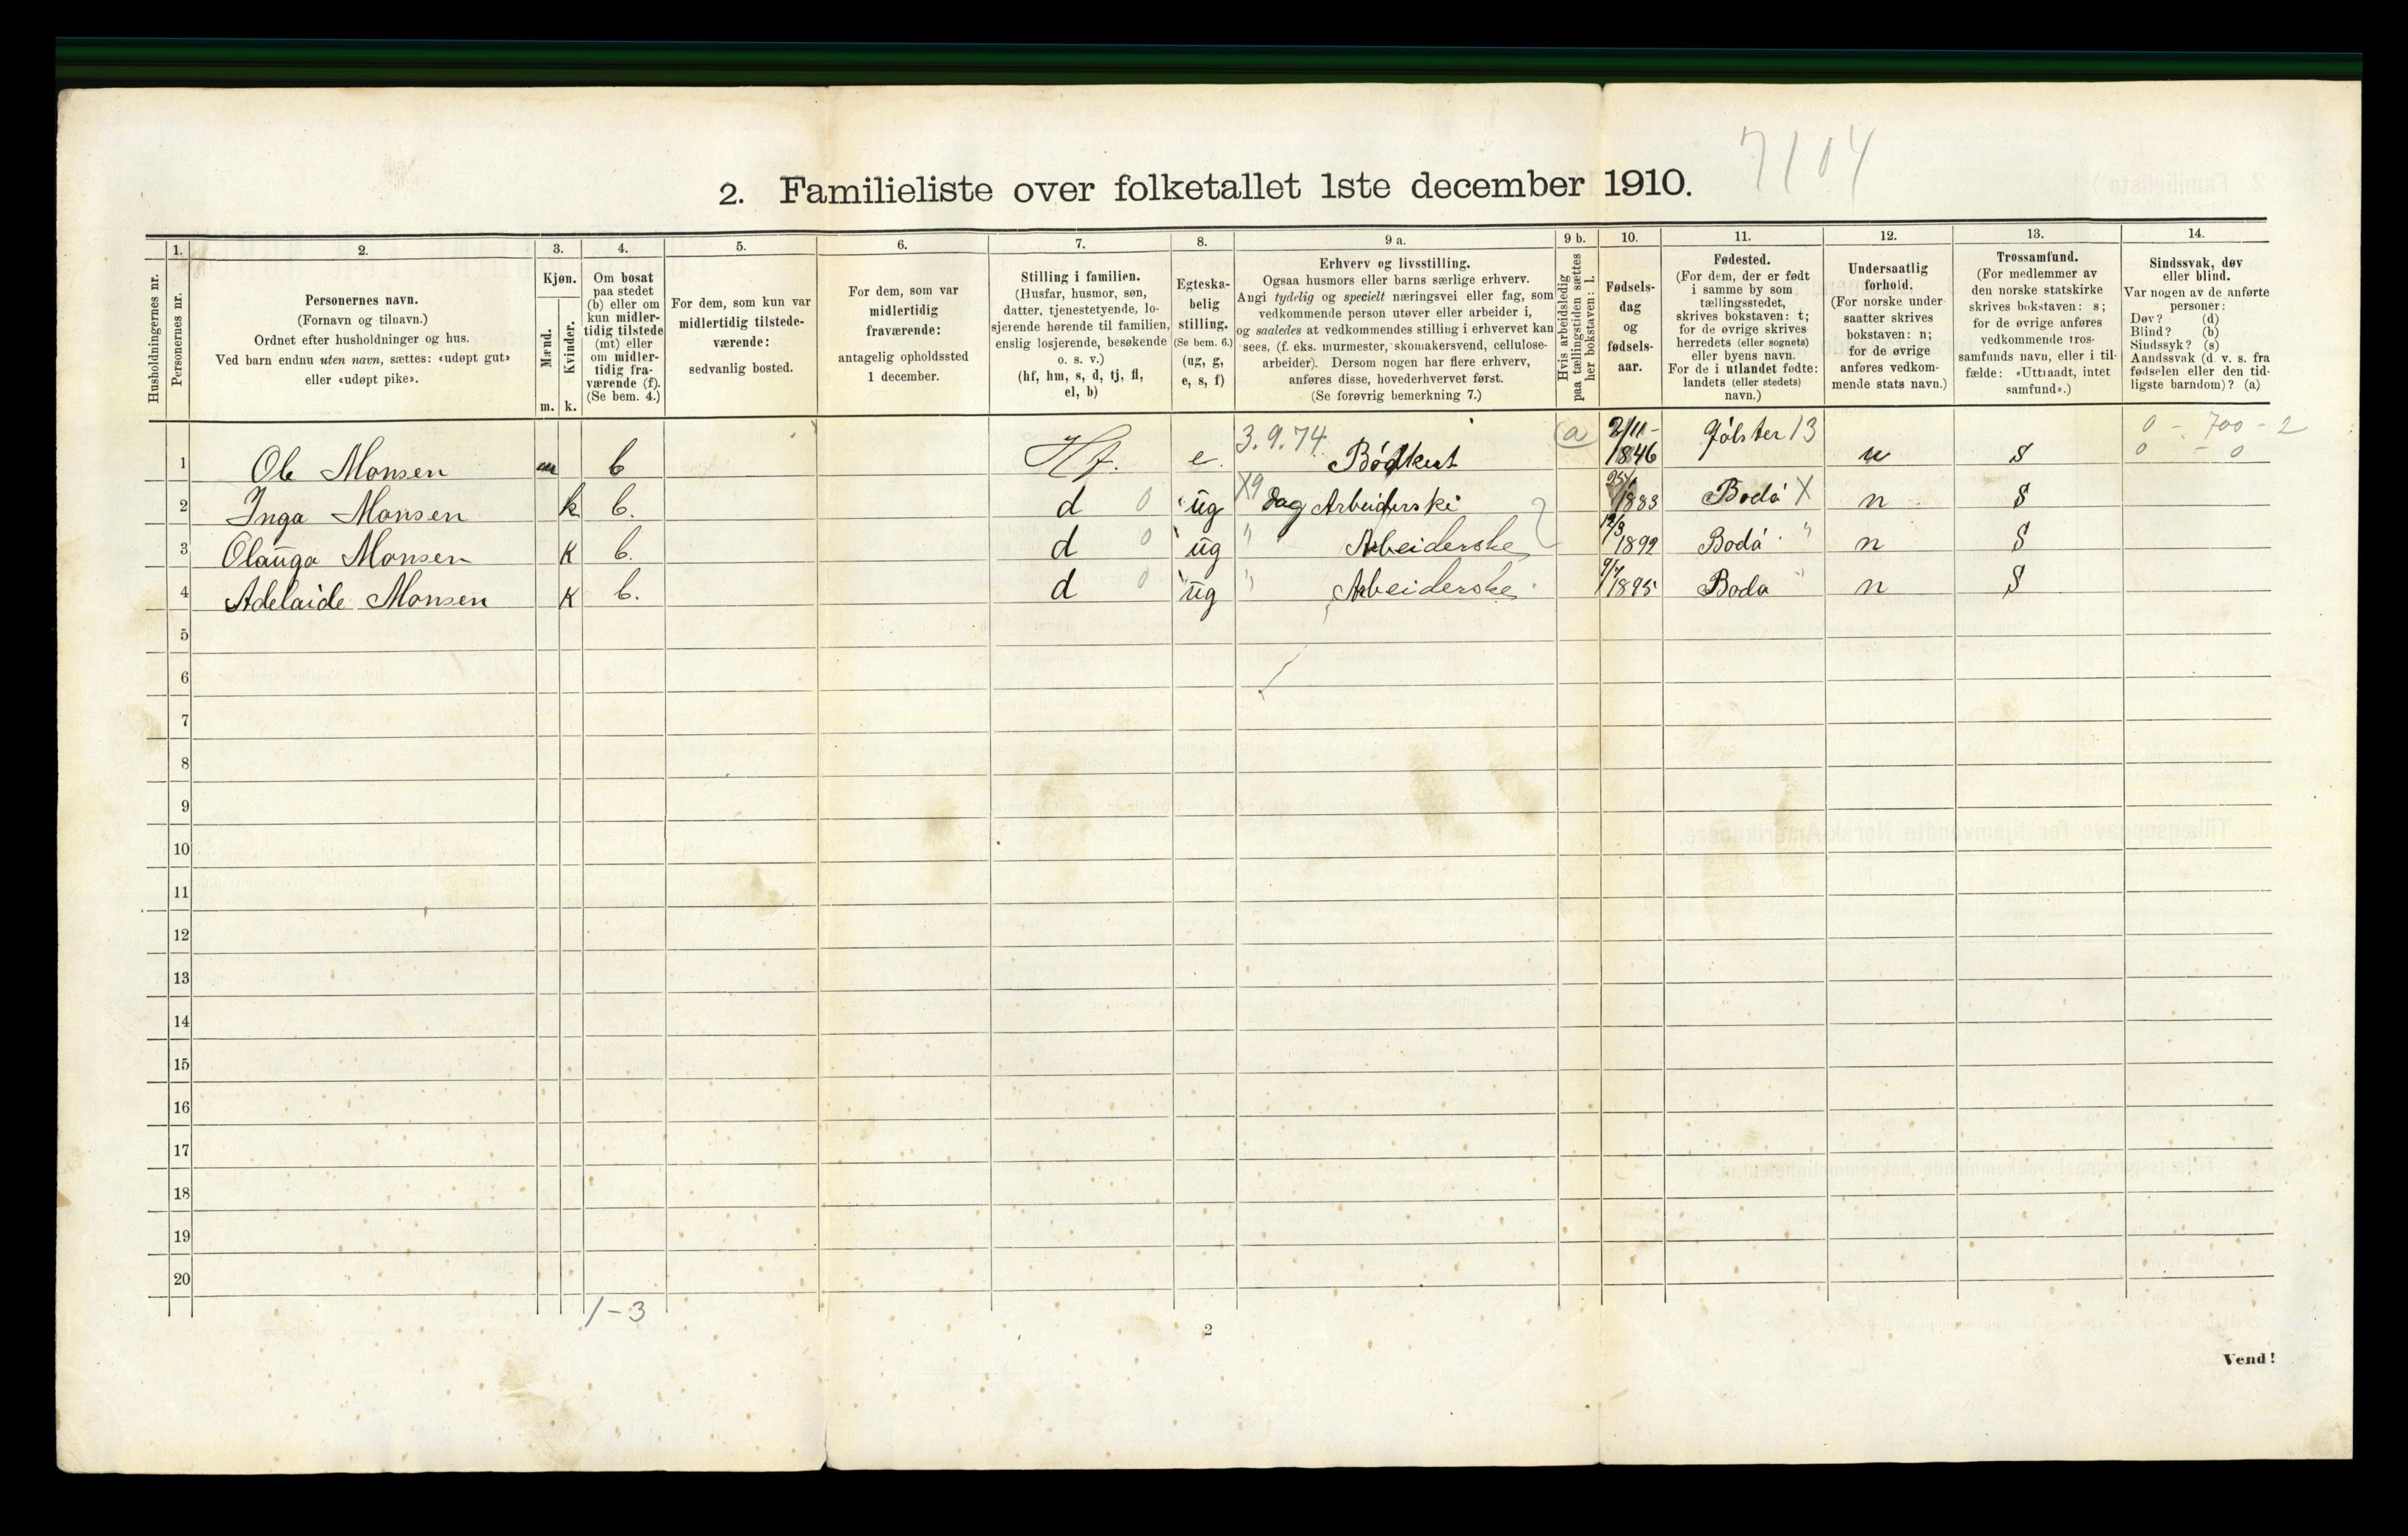 7104
2. Familieliste over folketallet 1ste december 1910.
Husholdningernes nr.
1.
Personernes nr.
2.
Personernes navn.
(Fornavn og tilnavn.)
Ordnet efter husholdninger og hus.
Ved barn endnu uten navn, sættes: «udøpt gut»
eller «udøpt pike».
3.
Kjøn.
Mænd.
Kvinder.
m. k.
4.
Om bosat
paa stedet
(b) eller om
kun midler-
tidig tilstede
(mt) eller
om midler-
tidig fra-
værende (f).
(Se bem. 4.)
5.
For dem, som kun var
midlertidig tilstede-
værende:
sedvanlig bosted.
6.
For dem, som var
midlertidig
fraværende:
antagelig opholdssted
1 december.
7.
Stilling i familien.
(Husfar, husmor, søn,
datter, tjenestetyende, lo-
sjerende hørende til familien,
enslig losjerende, besøkende
o. s. v.)
(hf, hm, s, d, tj, fl,
el, b)
8.
Egteska-
belig
stilling.
(Se bem. 6.)
(ug, g,
e, s, f)
9 a.
Erhverv og livsstilling.
Ogsaa husmors eller barns særlige erhverv.
Angi tydelig og specielt næringsvei eller fag, som
vedkommende person utøver eller arbeider i,
og saaledes at vedkommendes stilling i erhvervet kan
sees, (f. eks. murmester, skomakersvend, cellulose-
arbeider). Dersom nogen har flere erhverv,
anføres disse, hovederhvervet først.
(Se forøvrig bemerkning 7.)
9 b.
Hvis arbeidsledig
paa tællingstiden sættes
her bokstaven: l.
10.
Fødsels-
dag
og
fødsels-
aar.
11.
Fødested.
(For dem, der er født
i samme by som
tællingsstedet,
skrives bokstaven: t;
for de øvrige skrives
herredets (eller sognets)
eller byens navn.
For de i utlandet fødte:
landets (eller stedets)
navn.)
12.
Undersaatlig
forhold.
(For norske under-
saatter skrives
bokstaven: n;
for de øvrige
anføres vedkom-
mende stats navn.)
13.
Trossamfund.
(For medlemmer av
den norske statskirke
skrives bokstaven: s;
for de øvrige anføres
vedkommende tros-
samfunds navn, eller i til-
fælde: «Uttraadt, intet
samfund».)
14.
Sindssvak, døv
eller blind.
Var nogen av de anførte
personer:
Døv? (d)
Blind? (b)
Sindssyk? (s)
Aandssvak (d. v. s. fra
fødselen eller den tid-
ligste barndom)? (a)
3.9.74. (a) 2/11- Jølster 13 0 - 700 - 2
1 Ole Monsen m b Hf. e. Bødker 1846 n s 0 - 0
2 Inga Monsen k b. d 0 ug X9 Dag Arbeiderske 1883 Bodø X n s
3 Olauga Monsen k b. d 0 ug " Arbeiderske 12/3 1892 Bodø " n s
4 Adelaide Monsen k b. d 0 ug " Arbeiderske 9/7 1895 Bodø " n s
5
6
7
8
9
10
11
12
13
14
15
16
17
18
19
20
1-3
2
Vend!